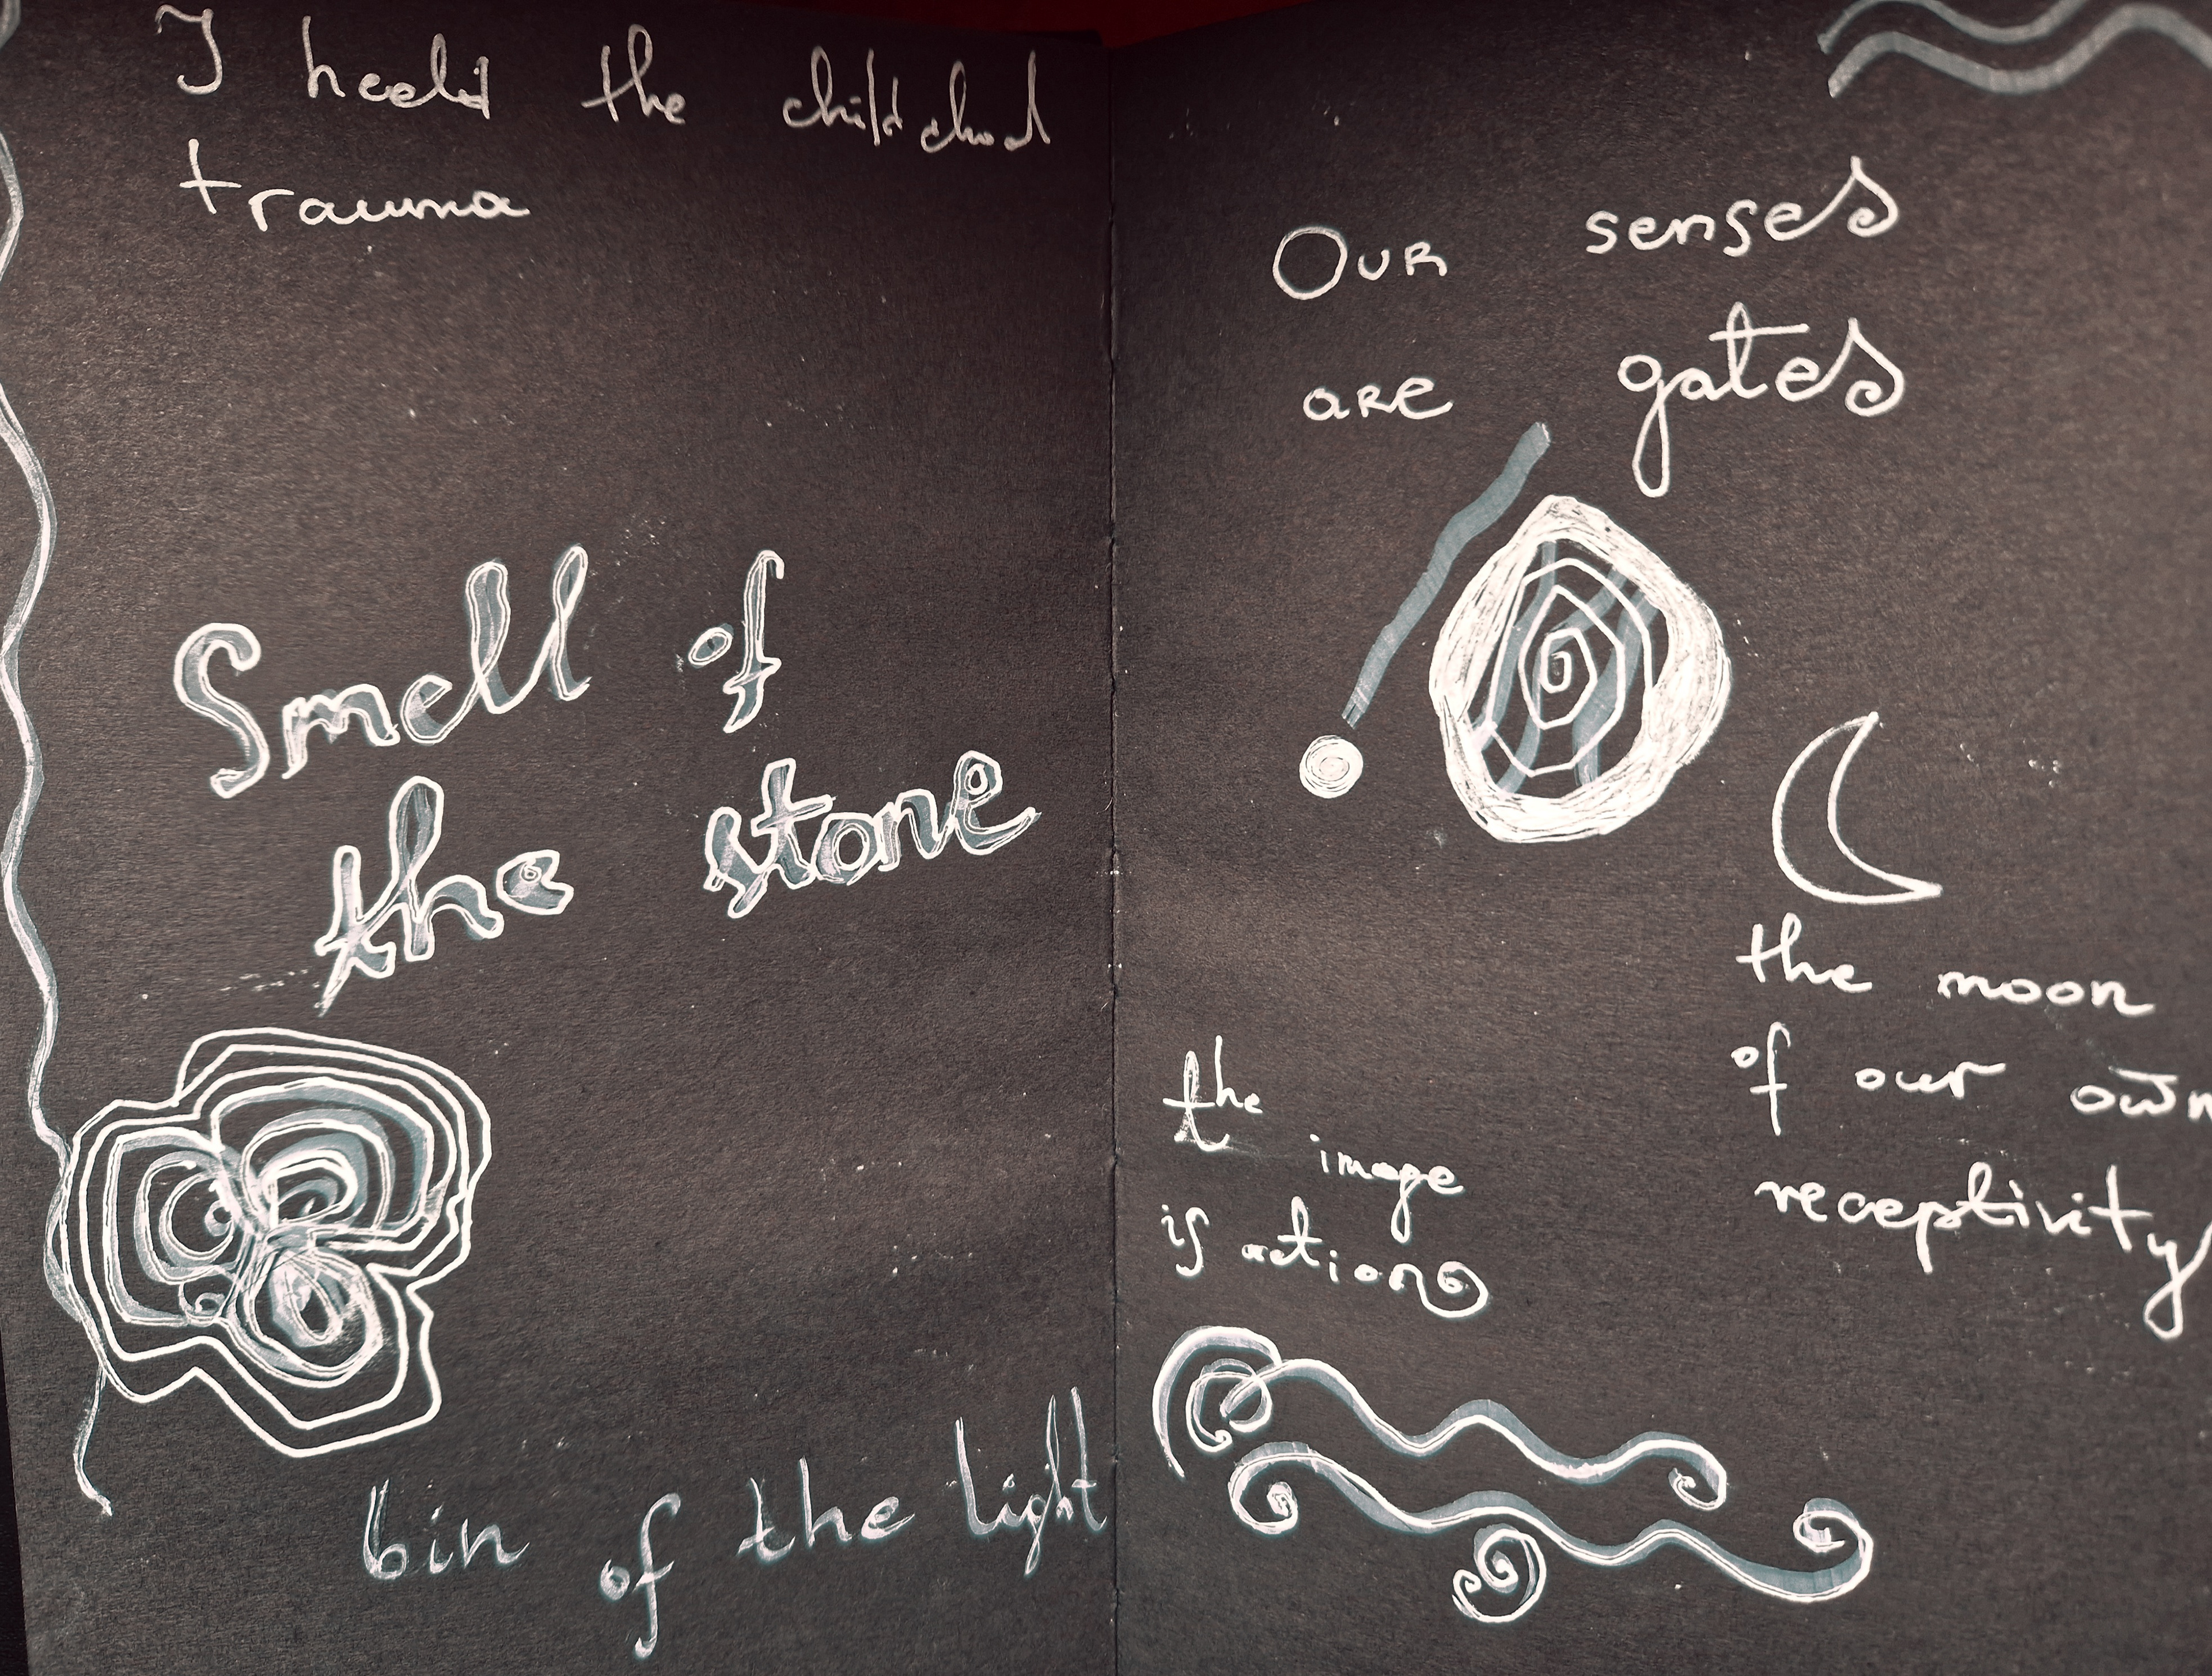 I heelid the childchod
trauma
Smell of
the stone
bin of the light
Our senses
are gates
the moon
of our own
receptivity
the image
is action